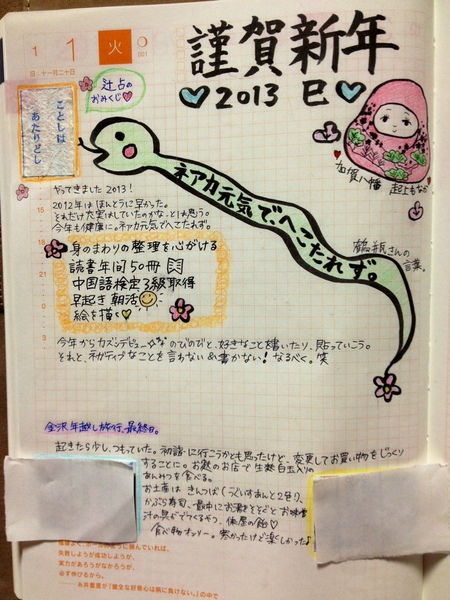 1 1 火
001
日:十一月二十日
謹賀新年
2013 巳
辻占の
おみくじ
ことしは
あたりどし
加賀八幡 起上もなか
ネアカ元気で、へこたれず。
鶴瓶さんの
言葉。
やってきました 2013!
2012年は ほんとうに早かった。
それだけ充実していたのかな、とは思う。
今年も健康に。ネアカ元気でへこたれず。
身のまわりの整理を心がける
読書年間50冊
中国語検定3級取得
早起き 朝活
絵を描く
今年からカズンデビュー なのびのびと、好きなことを書いたり、貼っていこう。
それと、ネガティブなことを言わない&書かない! なるべく。笑
金沢年越し旅行、最終日。
起きたら少し、つもっていた。初詣に行こうかとも思ったけど、変更してお買い物をじっくり
することに。お麩のお店で生麩白玉入りの
あんみつを食べる。
お土産は きんつば(うぐいすあんと2色)、
かぶら寿司、最中にお湯をそそぐとお味噌
汁の具がでてくるやつ、俵屋の飴
食べ物オンリー。寒かったけど楽しかった♪
失敗しようが成功しようが、
実力があろうがなかろうが、
必ず伸びるから。
——糸井重里が『健全な好奇心は病に負けない。』の中で